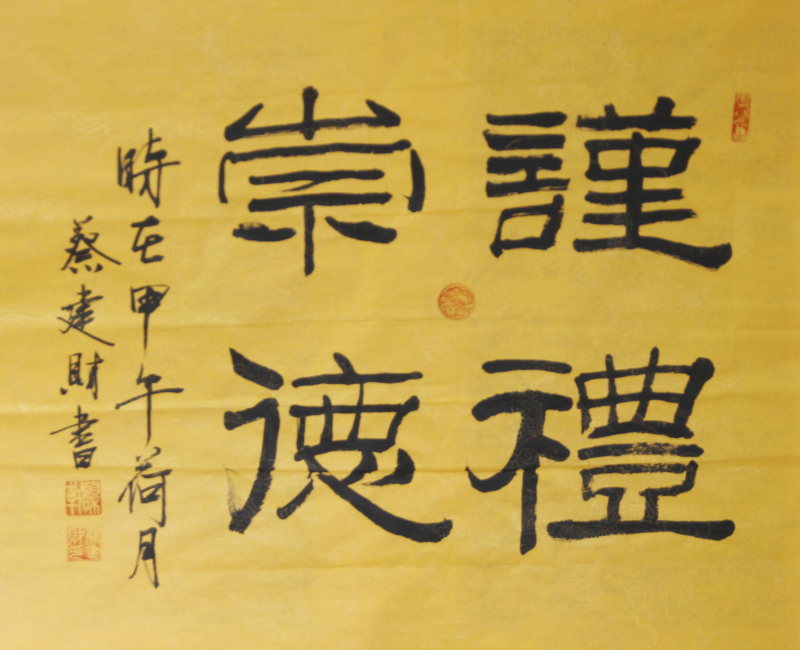 謹禮
崇德
時在甲午荷月
蔡建財書